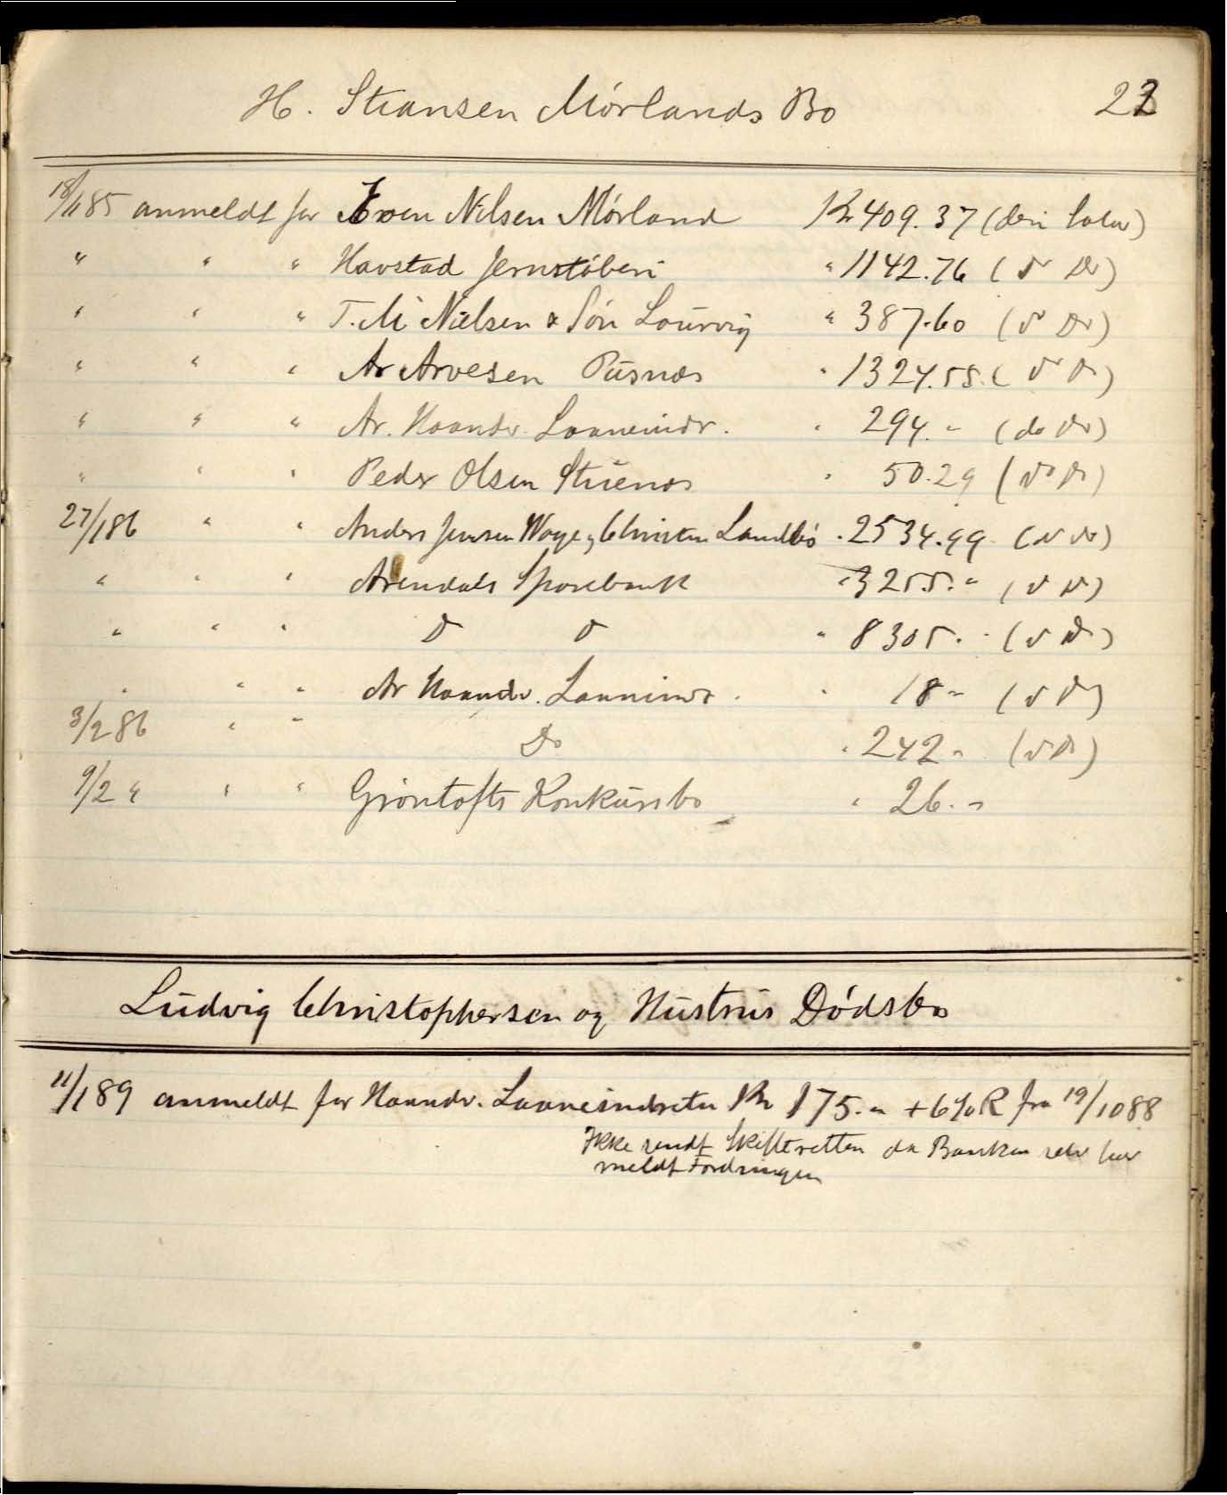 H. Stiansen Mørlands Bo 22
18/1185 anmeldt for Even Nilsen Mørland Kr 409.37 (den
" " " Havstad Jernstøberi " 1142.76 (do Do)
" " " T. M Nielsen & Søn Lourvig " 387.60 (do Do)
" " " Ar Arvesen Pusnæs " 1324.58 (do Do)
" " " Ar. Haandv. Laaneindr. " 294.- (do do)
" " " Peder Olsen Stuenæs " 50.29 (do Do)
27/186 " " Anders Jensen Woye og Christen Landbø " 2534.99 (do do)
" " " Arendals Sparebank " 3255.- (do do)
" " " Do Do " 8305.- (do Do)
" " " Ar Haandv. Laaneindr. " 18- (do Do)
3/286 " " Do " 242- (do Do)
9/2 " " " Grøntofts Konkursbo " 26.-
Ludvig Christophersen og Hustrus Dødsbo
11/189 anmeldt for Haandv. Laaneindretn Kr 175.- + 6% R fra 19/1088
Ikke sendt Skifteretten da Banken selv har
meldt Fordringen